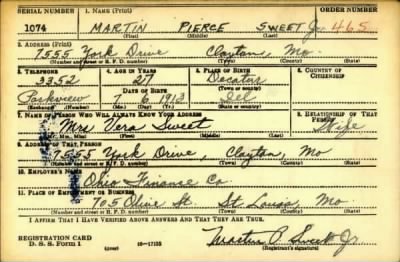 SERIAL NUMBER 1. NAME (Print) ORDER NUMBER
1074 MARTIN PIERCE SWEET Jr. 465
(First) (Middle) (Last)
2. ADDRESS (Print)
7555 York Drive Clayton, Mo.
(Number and street or R. F. D. number) (Town) (County) (State)
3. TELEPHONE 4. AGE IN YEARS 5. PLACE OF BIRTH 6. COUNTRY OF CITIZENSHIP
3352 27 Decatur
DATE OF BIRTH (Town or county)
Parkview 7 1913 Ill
(Exchange) (Number) (Mo.) (Day) (Yr.) (State or country)
7. NAME OF PERSON WHO WILL ALWAYS KNOW YOUR ADDRESS 8. RELATIONSHIP OF THAT PERSON
Mrs Vera Sweet Wife
(Mr., Mrs., Miss) (First) (Middle) (Last)
9. ADDRESS OF THAT PERSON
7555 York Drive, Clayton, Mo
(Number and street or R. F. D. number) (Town) (County) (State)
10. EMPLOYER'S NAME
Ohio Finance Co.
11. PLACE OF EMPLOYMENT OR BUSINESS
705 Olive St St Louis, Mo.
(Number and street or R. F. D. number) (Town) (County) (State)
I AFFIRM THAT I HAVE VERIFIED ABOVE ANSWERS AND THAT THEY ARE TRUE.
REGISTRATION CARD
D. S. S. Form 1 (over) 16-17105 Martin P. Sweet Jr
(Registrant's signature)